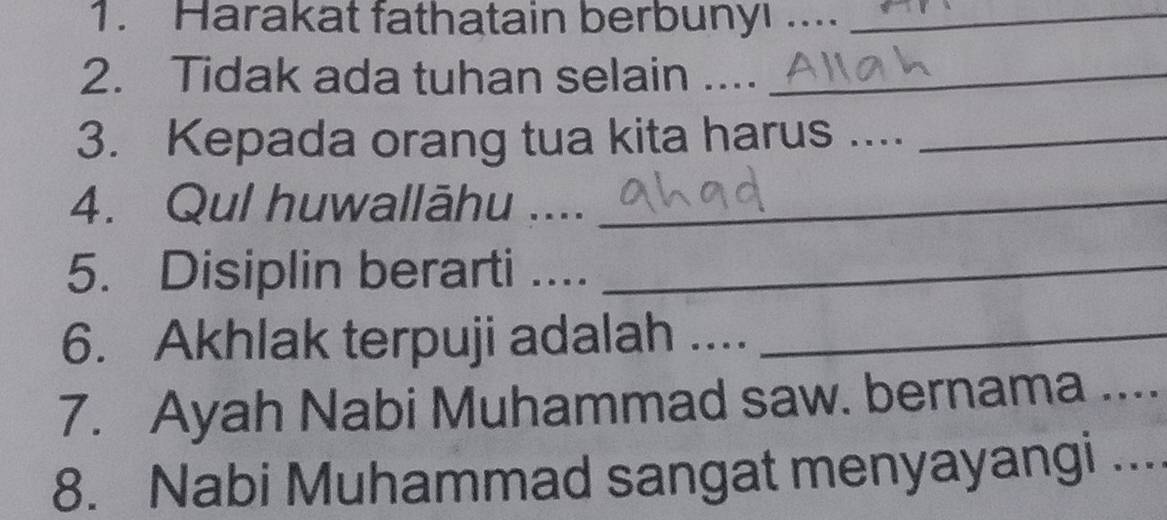 1. Harakat fathatain berbunyi .... ____
2. Tidak ada tuhan selain .... Allah
3. Kepada orang tua kita harus .... ____
4. Qul huwallāhu .... ahad
5. Disiplin berarti .... ____
6. Akhlak terpuji adalah .... ____
7. Ayah Nabi Muhammad saw. bernama ....
8. Nabi Muhammad sangat menyayangi ....